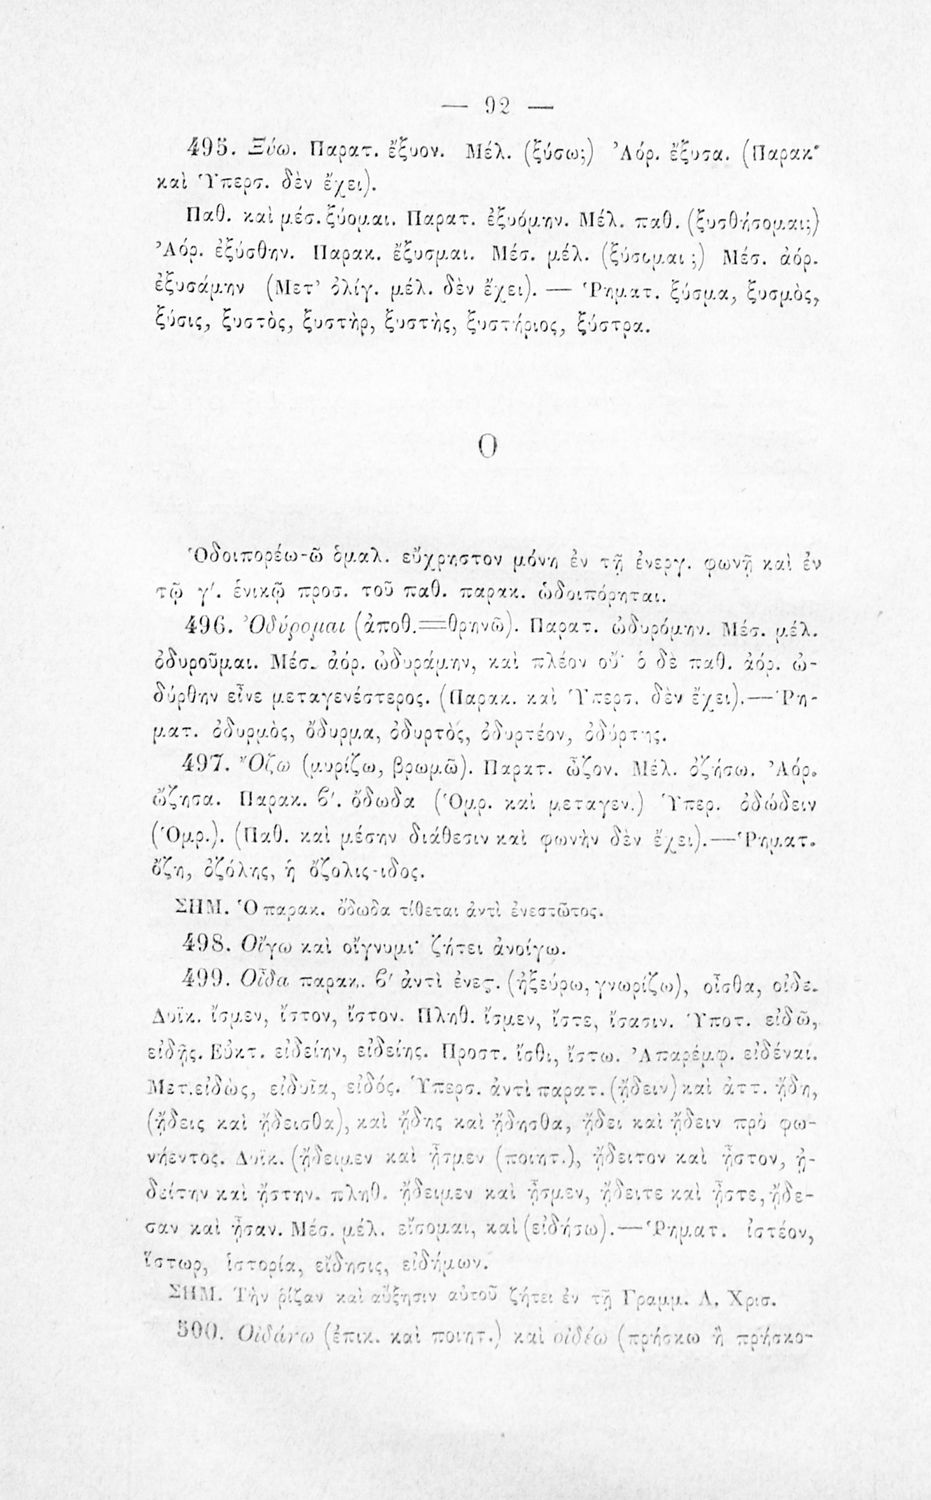 — 92 —
495. Ξύω. Παρατ. ἔξυον. Μέλ. (ξύσω;) Ἀόρ. ἔξυσα. (Παρακ·
καὶ Ὑπερσ. δὲν ἔχει).
Παθ. καὶ μέσ. ξύομαι. Παρατ. ἐξυόμην. Μέλ. παθ. (ξυσθήσομαι;)
Ἀόρ. ἐξύσθην. Παρακ. ἔξυσμαι. Μέσ. μέλ. (ξύσομαι ;) Μέσ. ἀόρ.
ἐξυσάμην (Μετ’ ὀλίγ. μέλ. δὲν ἔχει). — Ῥηματ. ξύσμα, ξυσμὸς,
ξύσις, ξυστὸς, ξυστὴρ, ξυστὴς, ξυστήριος, ξύστρα.
Ο
Ὁδοιπορέω-ῶ ὁμαλ. εὔχρηστον μόνη ἐν τῇ ἐνεργ. φωνῇ καὶ ἐν
τῷ γ′. ἑνικῷ προσ. τοῦ παθ. παρακ. ὡδοιπόρηται.
496. Ὀδύρομαι (ἀποθ.=θρηνῶ). Παρατ. ὠδυρόμην. Μέσ. μέλ.
ὀδυροῦμαι. Μέσ. ἀόρ. ὠδυράμην, καὶ πλέον οὔ· ὁ δὲ παθ. ἀόρ. ὠ-
δύρθην εἶνε μεταγενέστερος. (Παρακ. καὶ Ὑπερσ. δὲν ἔχει).—Ῥη-
ματ. ὀδυρμὸς, ὄδυρμα, ὀδυρτὸς, ὀδυρτέον, ὀδύρτης.
497. Ὄζω (μυρίζω, βρωμῶ). Παρατ. ὦζον. Μέλ. ὀζήσω. Ἀόρ.
ὤζησα. Παρακ. ϐ′. ὄδωδα (Ὁμρ. καὶ μεταγεν.) Ὑπερ. ὀδώδειν
(Ὁμρ.). (Παθ. καὶ μέσην διάθεσιν καὶ φωνὴν δὲν ἔχει).—Ῥηματ.
ὄζη, ὀζόλης, ἡ ὄζολις-ιδος.
ΣΗΜ. Ὁ παρακ. ὄδωδα τίθεται ἀντὶ ἐνεστῶτος.
498. Οἴγω καὶ οἴγνυμι· ζήτει ἀνοίγω.
499. Οἶδα παρακ. ϐ′ ἀντὶ ἐνεϛ. (ἠξεύρω, γνωρίζω), οἶσθα, οἶδε.
Δυϊκ. ἴσμεν, ἴστον, ἴστον. Πληθ. ἴσμεν, ἴστε, ἴσασιν. Ὑποτ. εἰδῶ,
εἰδῇς. Εὐκτ. εἰδείην, εἰδείης. Προστ. ἴσθι, ἴστω. Ἀπαρέμφ. εἰδέναι.
Μετ. εἰδὼς, εἰδυῖα, εἰδός. Ὑπερσ. ἀντὶ παρατ. (ᾔδειν) καὶ ἀττ. ᾔδη,
(ᾔδεις καὶ ᾔδεισθα), καὶ ᾔδης καὶ ᾔδησθα, ᾔδει καὶ ᾔδειν πρὸ φω-
νήεντος. Δυϊκ. (ᾔδειμεν καὶ ᾖσμεν (ποιητ.), ᾔδειτον καὶ ᾖστον, ᾐ-
δείτην καὶ ᾔστην. πληθ. ᾔδειμεν καὶ ᾖσμεν, ᾔδειτε καὶ ᾖστε, ᾔδε-
σαν καὶ ᾖσαν. Μέσ. μέλ. εἴσομαι, καὶ (εἰδήσω).— Ῥηματ. ἰστέον,
ἵστωρ, ἱστορία, εἴδησις, εἰδήμων.
ΣΗΜ. Τὴν ῥίζαν καὶ αὔξησιν αὐτοῦ ζήτει ἐν τῇ Γραμμ. Α. Χρισ.
500. Οἰδάνω (ἐπικ. καὶ ποιητ.) καὶ οἰδέω (πρήσκω ἢ πρήσκο-